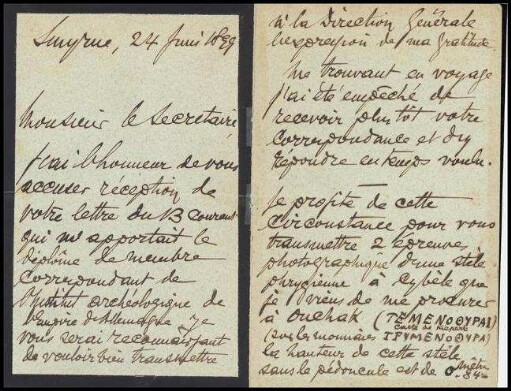 Smyrne, 24 Juin 1899
Monsieur le Secrétaire
J'ai l'honneur de vous
accuser réception de
votre lettre du 13 courant
qui m'apportait le
diplôme de membre
correspondant de
l'Institut archéologique de
l'Empire d'Allemagne. Je
vous serai reconnaissant
de vouloir bien transmettre
à la Direction Générale
l'expression de ma gratitude.
Me trouvant en voyage
j'ai été empêché de
recevoir plutôt votre
correspondance et d'y
répondre en temps voulu.
Je profite de cette
circonstance pour vous
transmettre 2 épreuves
photographique d'une stèle
phrygienne à Cybèle que
je viens de me procurer
à Ouchak (ΤΕΜΕΝΟΘΥΡΑΙ)
carte de Kiepert
(sur les monnaies ΤΡΥΜΕΝΟΘΥΡΑΙ)
la hauteur de cette stèle
sans le pédoncule est de 0.mètr 84